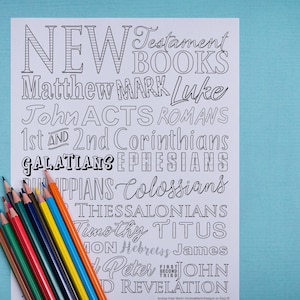 NEW Testament
BOOKS
Matthew MARK Luke
John ACTS ROMANS
1st AND 2nd Corinthians
GALATIANS EPHESIANS
PPIANS Colossians
THESSALONIANS
Timothy TITUS
MON Hebrews James
Peter FIRST SECOND THIRD JOHN
REVELATION